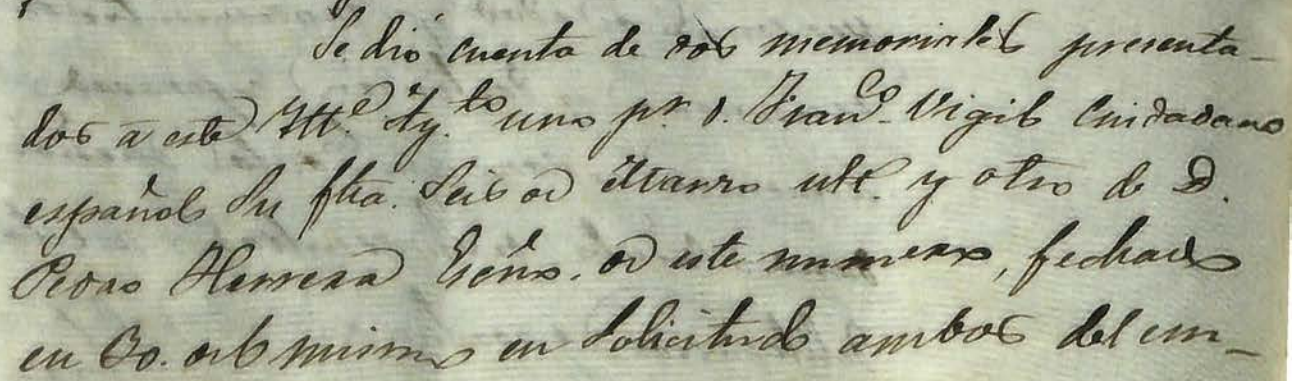 Se dió cuenta de dos memoriales presenta-
dos á este Itt.e Ay.to uno pr. D. Franco. Vigil Ciudadano
español su fha. Seis de Marzo ult. y otro de D.
Pedro Herrera Esño. de este numero, fechado
en 30. del mismo en solicitud ambos del em-